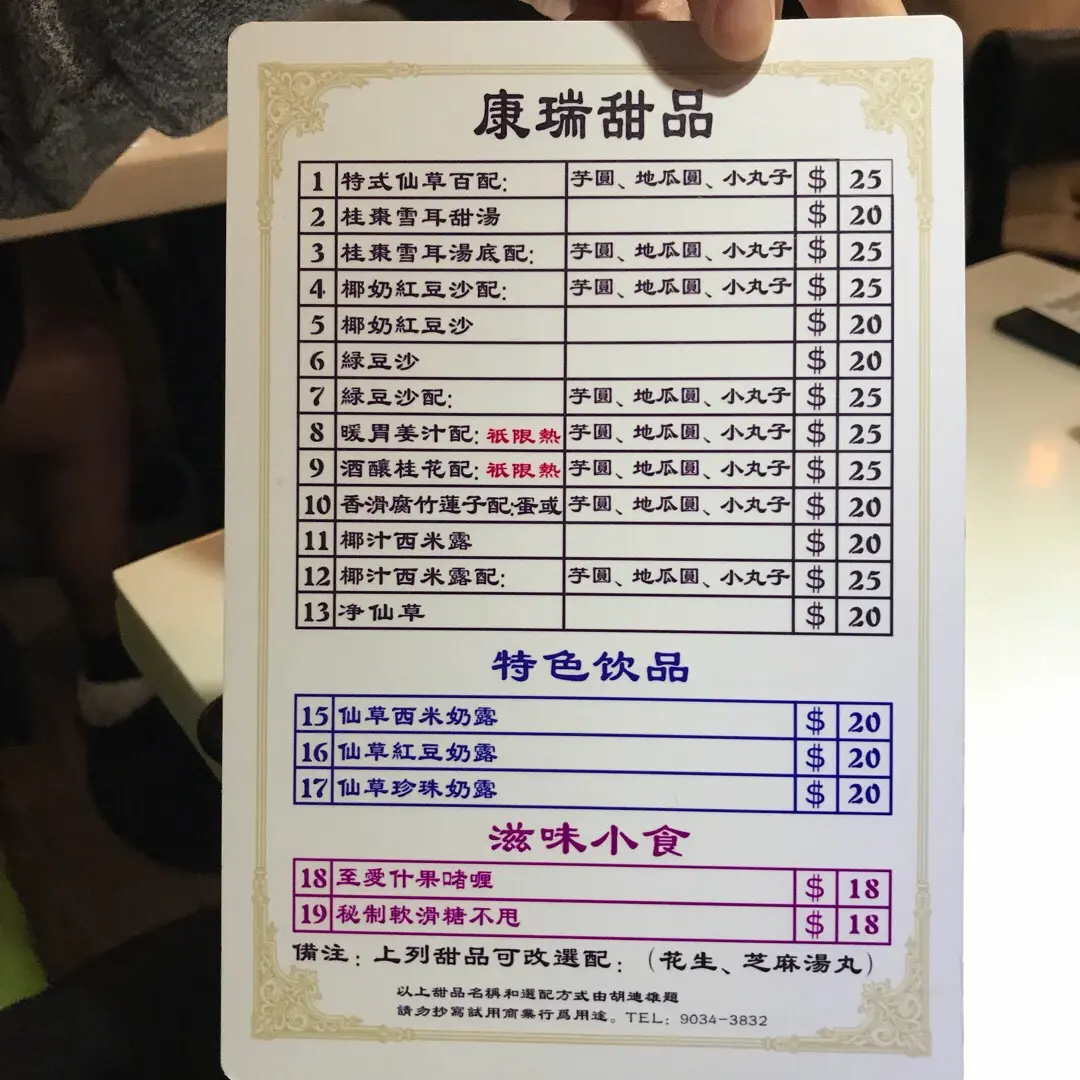 康瑞甜品
1 特式仙草百配: 芋圓、地瓜圓、小丸子 $ 25
2 桂棗雪耳甜湯 $ 20
3 桂棗雪耳湯底配: 芋圓、地瓜圓、小丸子 $ 25
4 椰奶紅豆沙配: 芋圓、地瓜圓、小丸子 $ 25
5 椰奶紅豆沙 $ 20
6 綠豆沙 $ 20
7 綠豆沙配: 芋圓、地瓜圓、小丸子 $ 25
8 暖胃姜汁配: 祇限熱 芋圓、地瓜圓、小丸子 $ 25
9 酒釀桂花配: 祇限熱 芋圓、地瓜圓、小丸子 $ 25
10 香滑腐竹蓮子配:蛋或 芋圓、地瓜圓、小丸子 $ 20
11 椰汁西米露 $ 20
12 椰汁西米露配: 芋圓、地瓜圓、小丸子 $ 25
13 净仙草 $ 20
特色饮品
15 仙草西米奶露 $ 20
16 仙草紅豆奶露 $ 20
17 仙草珍珠奶露 $ 20
滋味小食
18 至愛什果啫喱 $ 18
19 秘制軟滑糖不甩 $ 18
備注：上列甜品可改選配：（花生、芝麻湯丸）
以上甜品名稱和選配方式由胡連雄題
請勿抄寫試用商業行爲用途。TEL: 9034-3832